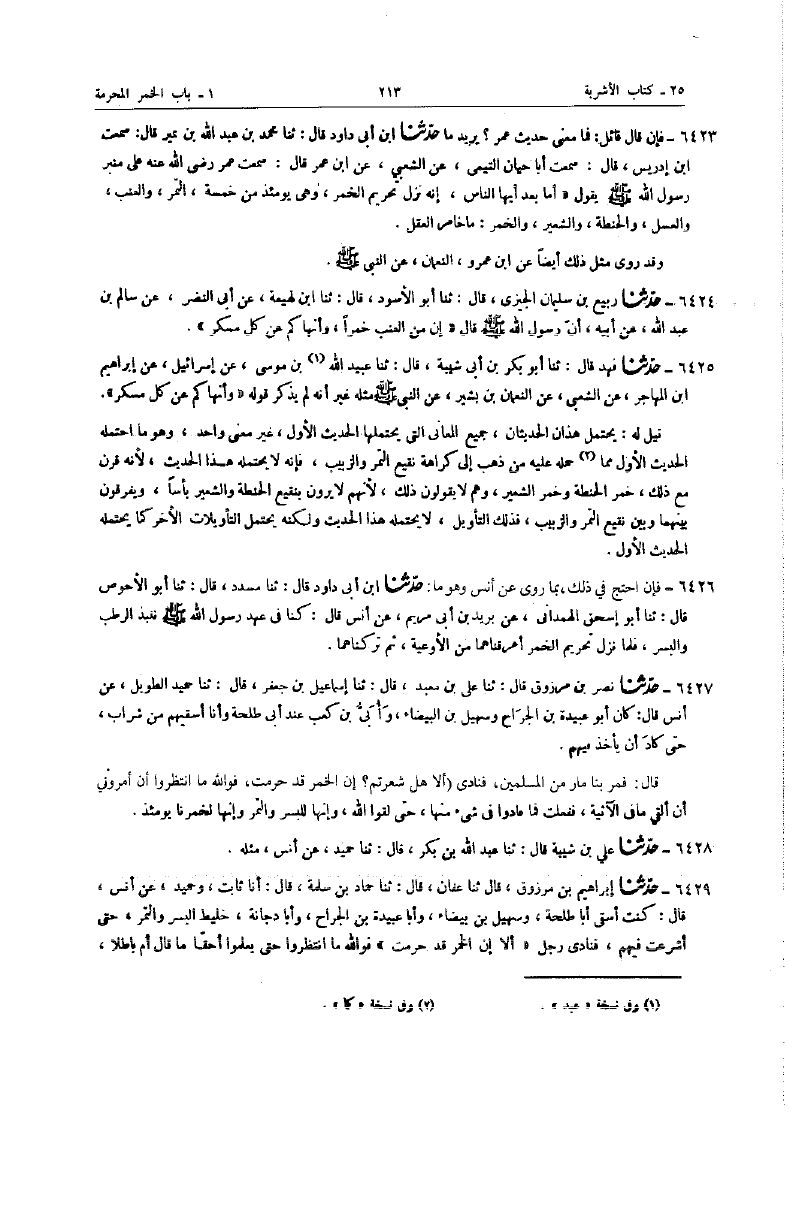 ٢٥ - كتاب الأشربة ٢١٣ ١ - باب الخمر المحرمة
٦٤٢٣ - فإن قال قائل: فما معنى حديث عمر ؟ يريد ما حدّثنا ابن أبى داود قال : ثنا محمد بن عبد الله بن نمير قال: سمعت
ابن إدريس ، قال : سمعت أبا حيان التيمى ، عن الشعبي ، عن ابن عمر قال : سمعت عمر رضى الله عنه على منبر
رسول الله ﷺ يقول « أما بعد أيها الناس ، إنه نزل تحريم الخمر ، وهى يومئذ من خمسة ، التمر ، والعنب ،
والعسل ، والحنطة ، والشعير ، والخمر : ماخامر العقل .
وقد روى مثل ذلك أيضاً عن ابن عمرو ، النعمان ، عن النبي ﷺ .
٦٤٢٤ - حدّثنا ربيع بن سليمان الجيزى ، قال : ثنا أبو الأسود ، قال : ثنا ابن لهيعة ، عن أبى النضر ، عن سالم بن
عبد الله ، عن أبيه ، أنّ رسول الله ﷺ قال « إن من العنب خمراً ، وأنهاكم عن كل مسكر » .
٦٤٢٥ - حدّثنا فهد قال : ثنا أبو بكر بن أبى شيبة ، قال : ثنا عبيد الله (١) بن موسى ، عن إسرائيل ، عن إبراهيم
ابن المهاجر ، عن الشعبي ، عن النعمان بن بشير ، عن النبي ﷺ مثله غير أنه لم يذكر قوله « وأنهاكم عن كل مسكر».
قيل له : يحتمل هذان الحديثان ، جميع المعانى التى يحتملها الحديث الأول ، غير معنى واحد ، وهو ما احتمله
الحديث الأول مما (٢) حمله عليه من ذهب إلى كراهة نقيع التمر والزبيب ، فإنه لايحتمله هذا الحديث ، لأنه قرن
مع ذلك ، خمر الحنطة وخمر الشعير ، وهم لايقولون ذلك ، لأنهم لايرون بنقيع الحنطة والشعير بأساً ، ويفرقون
بينهما وبين نقيع التمر والزبيب ، فذلك التأويل ، لايحتمله هذا الحديث ولكنه يحتمل التأويلات الأخر كما يحتمله
الحديث الأول .
٦٤٢٦ - فإن احتج في ذلك، بما روى عن أنس وهو ما: حدّثنا ابن أبى داود قال : ثنا مسدد ، قال : ثنا أبو الأحوص
قال : ثنا أبو إسحق الهمدانى ، عن بريد بن أبى مريم ، عن أنس قال : كنا فى عهد رسول الله ﷺ ننبذ الرطب
والبسر ، فلما نزل تحريم الخمر أهرقناهما من الأوعية ، ثم تركناهما .
٦٤٢٧ - حدّثنا نصر بن مرزوق قال : ثنا على بن معبد ، قال : ثنا إسماعيل بن جعفر ، قال : ثنا حميد الطويل ، عن
أنس قال: كان أبو عبيدة بن الجراح وسهيل بن البيضاء ، وأُبَىُّ بن كعب عند أبى طلحة وأنا أسقيهم من شراب ،
حتى كادَ أن يأخذ فيهم .
قال: فمر بنا مار من المسلمين، فنادى (ألا هل شعرتم؟ إن الخمر قد حرمت، فوالله ما انتظروا أن أمرونى
أن ألق مافى الآنية ، ففعلت فما عادوا فى شىء منها ، حتى لقوا الله ، وإنها للبسر والتمر وإنها لخمرنا يومئذ .
٦٤٢٨ - حدّثنا علي بن شيبة قال : ثنا عبد الله بن بكر ، قال : ثنا حميد ، عن أنس ، مثله .
٦٤٢٩ - حدّثنا إبراهيم بن مرزوق ، قال ثنا عفان ، قال : ثنا حماد بن سلمة ، قال : أنا ثابت ، وحميد ، عن أنس ،
قال : كنت أسقى أبا طلحة ، وسهيل بن بيضاء ، وأبا عبيدة بن الجراح ، وأبا دجانة ، خليط البسر والتمر ، حتى
أسرعت فيهم ، فنادى رجل « ألا إن الخمر قد حرمت » فوالله ما انتظروا حتى يعلموا أحقّا ما قال أم باطلا ،
(١) وفى نسخة « عبد » . (٢) وفى نسخة « كما » .